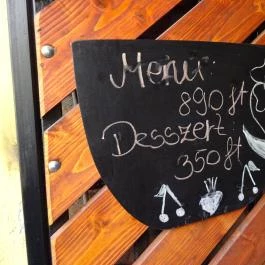 Menü:
890 ft
Desszert:
350 ft